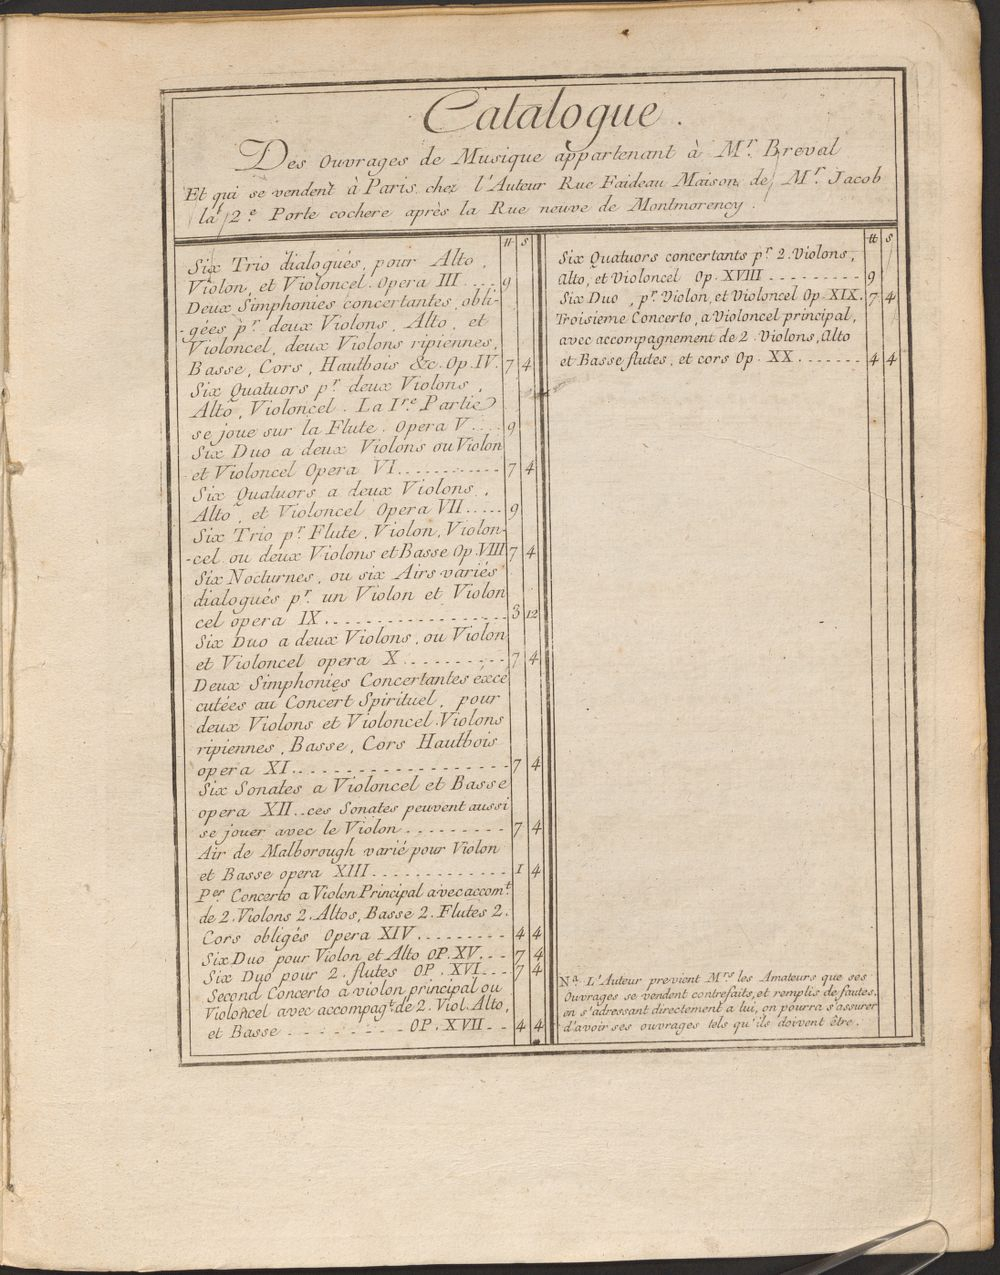 Catalogue.
Des Ouvrages de Musique appartenant à Mr. Breval
Et qui se vendent à Paris chez l'Auteur Rue Faideau Maison de Mr. Jacob
la 2e. Porte cochere après la Rue neuve de Montmorency.
tt s
Six Trio dialogués, pour Alto,
Violon, et Violoncel. Opera III.... 9
Deux Simphonies concertantes obli-
-gées pr. deux Violons, Alto, et
Violoncel, deux Violons ripiennes,
Basse, Cors, Hautbois &c. Op. IV. 7 4
Six Quatuors pr. deux Violons,
Alto, Violoncel. La Ire. Partie
se joue sur la Flute. Opera V.... 9
Six Duo a deux Violons ou Violon
et Violoncel Opera VI........... 7 4
Six Quatuors a deux Violons,
Alto, et Violoncel Opera VII..... 9
Six Trio pr. Flute, Violon, Violon-
-cel ou deux Violons et Basse Op. VIII 7 4
Six Nocturnes, ou six Airs variés
dialogués pr. un Violon et Violon
cel opera IX.................. 3 12
Six Duo a deux Violons, ou Violon
et Violoncel opera X.......... 7 4
Deux Simphonies Concertantes éxcé
cutées au Concert Spirituel, pour
deux Violons et Violoncel. Violons
ripiennes, Basse, Cors Hautbois
opera XI..................... 7 4
Six Sonates a Violoncel et Basse
opera XII..ces Sonates peuvent aussi
se jouer avec le Violon.......... 7 4
Air de Malborough varié pour Violon
et Basse opera XIII............. 1 4
Per. Concerto a Violon Principal avec accomt.
de 2. Violons 2. Altos, Basse 2. Flutes 2.
Cors obligés Opera XIV......... 4 4
Six Duo pour Violon et Alto OP. XV... 7 4
Six Duo pour 2. flutes OP. XVI... 7 4
Second Concerto a violon principal ou
Violoncel avec accompagt. de 2. Viol. Alto,
et Basse .......... OP. XVII... 4 4
tt s
Six Quatuors concertants pr. 2. Violons,
Alto, et Violoncel Op. XVIII.......... 9
Six Duo, pr. Violon, et Violoncel Op. XIX. 7 4
Troisieme Concerto, a Violoncel principal,
avec accompagnement de 2. Violons, Alto
et Basse flutes, et cors Op. XX....... 4 4
Na. L'Auteur previent Mrs. les Amateurs que ses
Ouvrages se vendent contrefaits, et remplis de fautes.
en s'adressant directement a lui, on pourra s'assurer
d'avoir ses ouvrages tels qu'ils doivent être.